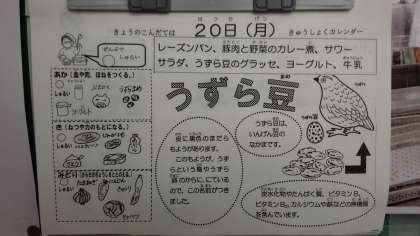 きょうのこんだては 20日(月) きゅうしょくカレンダー
はつか げつ
ぜんぶで
しゅるい
レーズンパン、豚肉と野菜のカレー煮、サワー
サラダ、うずら豆のグラッセ、ヨーグルト、牛乳
ぎゅうにゅう
あか(血や肉、ほねをつくる。)
しゅるい
ヨーグルト
き(ねつや力のもとになる。)
しゅるい
みどり
しゅるい
たまねぎ
キャベツ
うずら豆
皮に濃色のまだら
もようがあります。
このもようが、うず
らという鳥やうずら
卵のからににている
ので、この名前がつき
ました。
うずら豆は、
いんげん豆の
なかまです。
炭水化物やたんぱく質、ビタミンB₁、
ビタミンB₂、カルシウムや鉄などの無機質
を含んでいます。